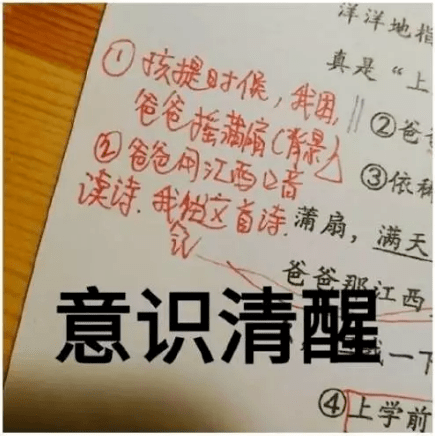 洋洋地指
真是“上
①孩提时候，我困，
爸爸摇蒲扇(背景)
②爸
②爸爸用江西口音
③依稀
读诗.我 这首诗.
记
蒲扇，满天
爸爸那江西
意识清醒
我一下
④上学前